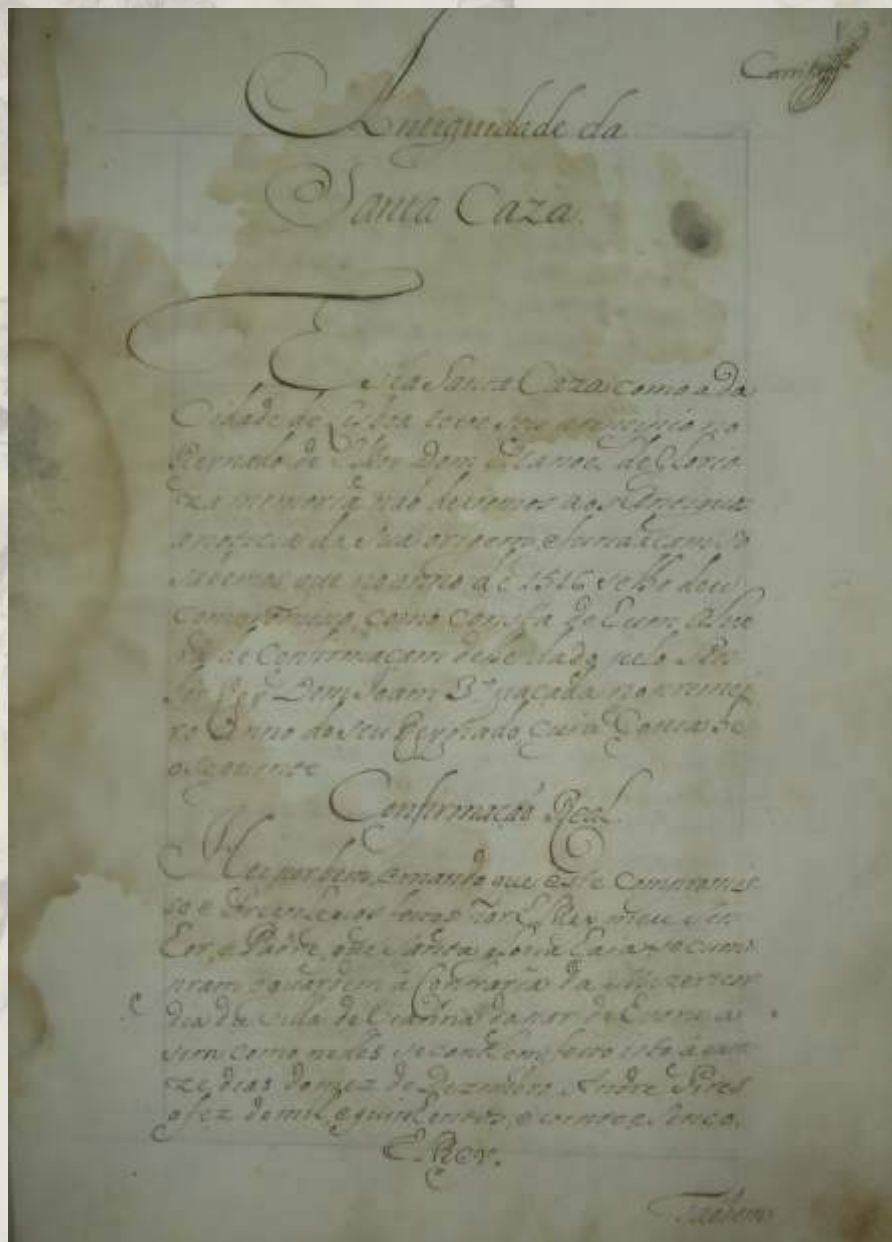 Antiguidade da
Santa Caza.
Esta Santa Caza como a da
Cidade de Lisboa teve seu principio no
Reynado de Dom Manoel de Glorio
za memoria não devemos aos Antiguos
a noticia da sua origem, e fundaçam, só
sabemos que no anno de 1516 se lhe deu
compromisso, como consta de hum Alva
rá de Confirmaçam delle dado pelo Sen
hor Rey Dom Joam 3º no primei
ro Anno do seu Reynado, cuja Copia he
o seguinte
Confirmação Real
Hei por bem, e mando que este Compromis
so e feitos por ElRey meu Sen
hor, e Padre, que santa gloria haja se cum
pram e guardem á Confraria da Mizericor
dia da Villa de Vianna da par de Evora as
sim como nelles se conthem, feito
ze dias do mez de Dezembro. Andre Pires
o fez de mil, e quinhentos, e vinte e sinco.
ElRey.